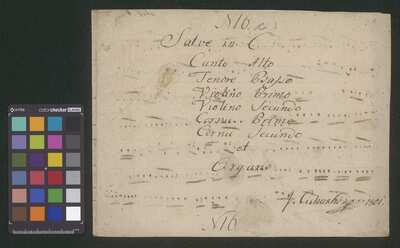 N16.
Salve in C
Canto Alto
Tenore Basso
Violino Primo
Violino Secundo
Cornu Primo
Cornu Secundo
et
Organo
1801.
N16
colorchecker